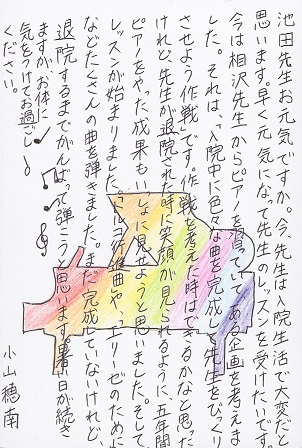 池田先生お元気ですか。今、先生は入院生活で大変だと
思います。早く元気になって先生のレッスンを受けたいです。
今は相沢先生からピアノを習っていてある企画を考えま
した。それは、「入院中に色々な曲を完成し、先生をびっくり
させよう作戦」です。作戦を考えた時はできるかなと思った
けれど、先生が退院された時に笑顔が見られるように、五年間
ピアノをやった成果もいっしょに見せようと思いました。そして、
レッスンが始まりました。トルコ行進曲や、エリーゼのために
などたくさんの曲を弾きました。まだ完成していないけれど、
退院するまでがんばって弾こうと思います。暑い日が続き
ますがお体に
気をつけてお過ごし
ください。
小山穂南